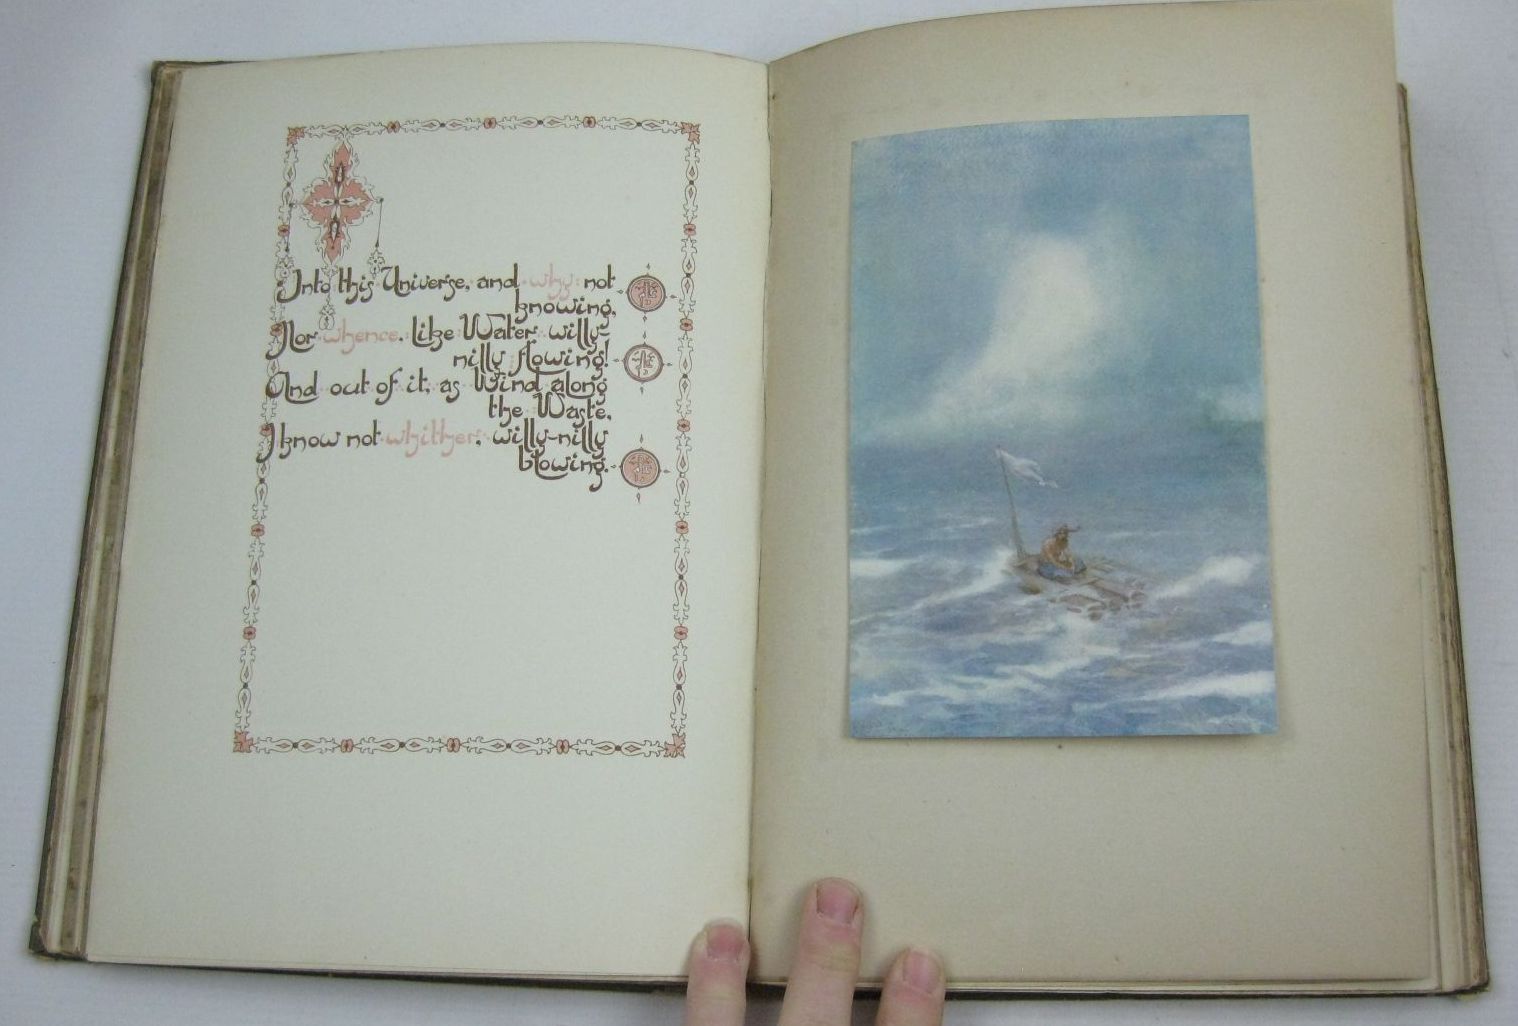 Into this Universe, and why not
knowing,
Nor whence, like Water willy-
nilly flowing!
And out of it, as Wind along
the Waste,
I know not whither, willy-nilly
blowing.